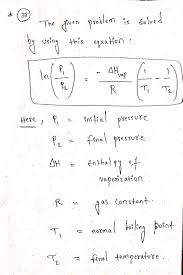 * (30) The given problem is solved
by using this equation:
ln(P₁/P₂) = -ΔHvap/R (1/T₁ - 1/T₂)
Here, P₁ = initial pressure
P₂ = final pressure
ΔH = Enthalpy of
vaporization
R = gas constant.
T₁ = normal boiling point
T₂ = final temperature.